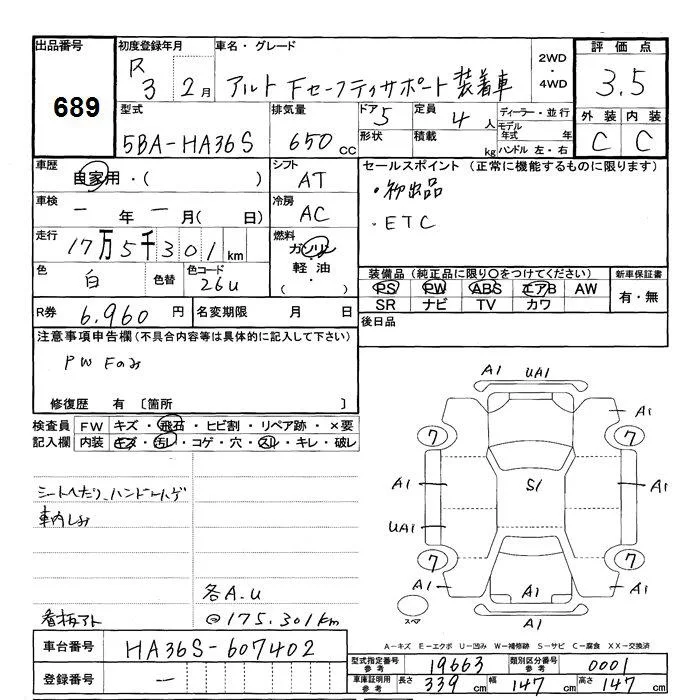 出品番号
689
初度登録年月
R 3 2月
車名・グレード
アルト Fセーフティサポート装着車
2WD
・
4WD
評価点
3.5
外装 内装
C C
型式
5BA-HA36S
排気量
650 cc
ドア 5
形状
定員 4 人
積載 kg
ディーラー・並行
モデル年式 年
ハンドル 左・右
車歴
自家用・( )
シフト
AT
セールスポイント (正常に機能するものに限ります)
・初出品
・ETC
車検
一 年 一 月( 日)
冷房
AC
走行
17万5千301 km
燃料
ガソリン
・
軽油
( ・ )
色
白
色替
色コード
26U
装備品 (純正品に限り○をつけてください)
PS PW ABS エアB AW
SR ナビ TV カワ
新車保証書
有・無
R券 6,960 円
名変期限 月 日
後日品
注意事項申告欄(不具合内容等は具体的に記入して下さい)
PW Fのみ
修復歴 有 〔箇所 〕
検査員 FW キズ・飛石・ヒビ割・リペア跡・×要
記入欄 内装 キズ・汚レ・コゲ・穴・スレ・キレ・破レ
シートへたり、ハンドルハゲ
車内しみ
各A.U
看板アト
@175.301km
A1 UA1
A1 A1
7 7
A1 S1 A1
UA1
7 7
A1 A1 A1
A1
スペア
A-キズ E-エクボ U-凹み W-補修跡 S-サビ C-腐食 XX-交換済
車台番号
HA36S-607402
登録番号
一
型式指定番号
参考
19663
類別区分番号
参考
0001
車庫証明用
参考
長さ 339 cm
幅 147 cm
高さ 147 cm